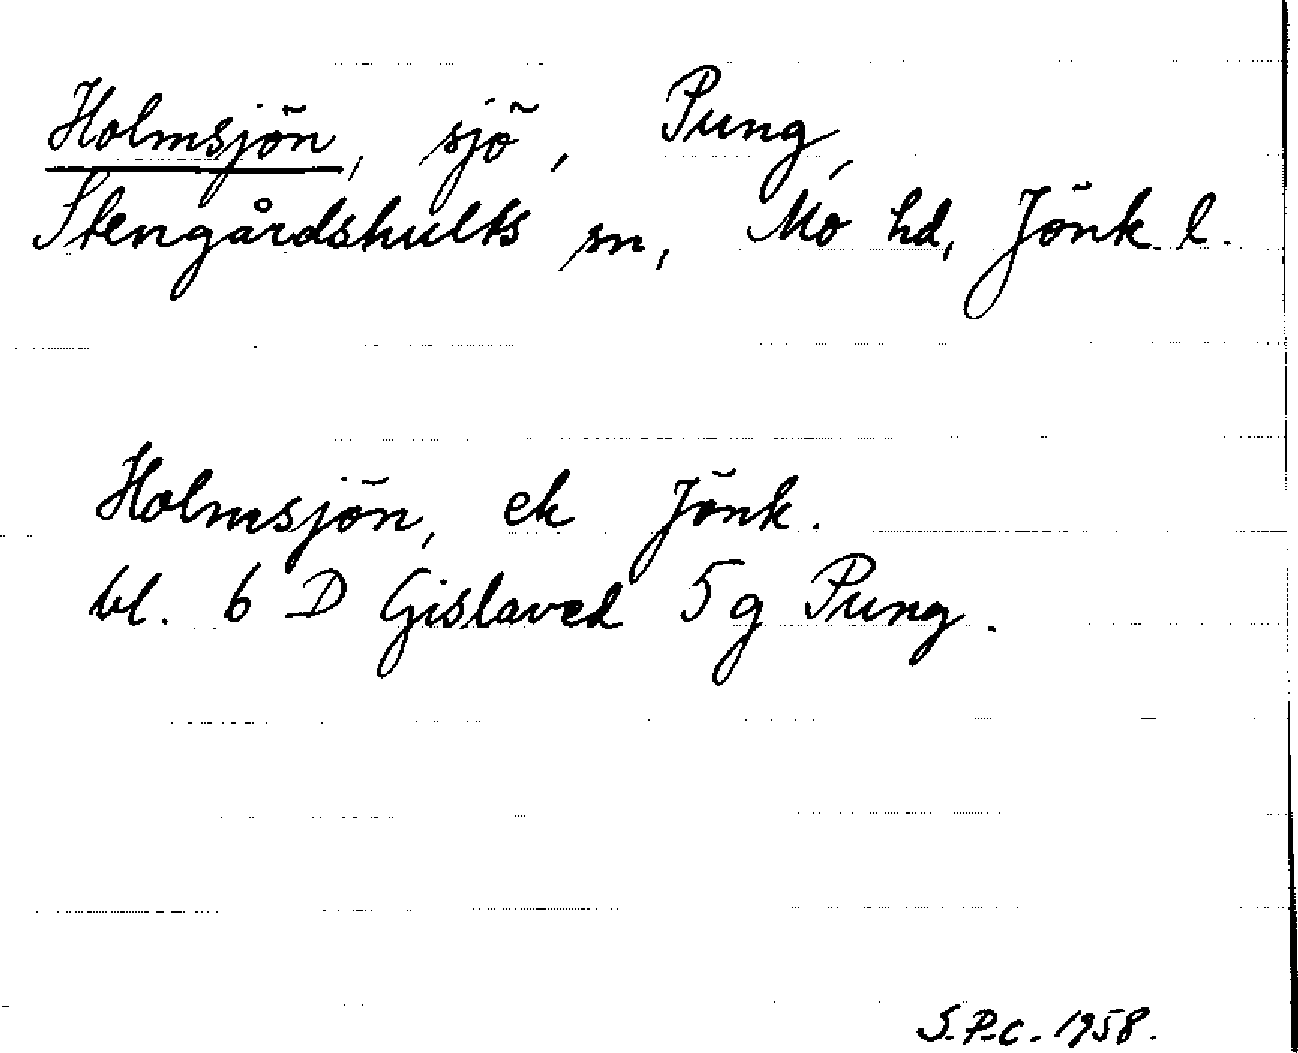 Holmsjön, sjö, Pung,
Stengårdshults sn, Mo hd, Jönk l.
Holmsjön, ek Jönk.
bl. 6 D Gislaved 5g Pung.
S.P.C. 1958.